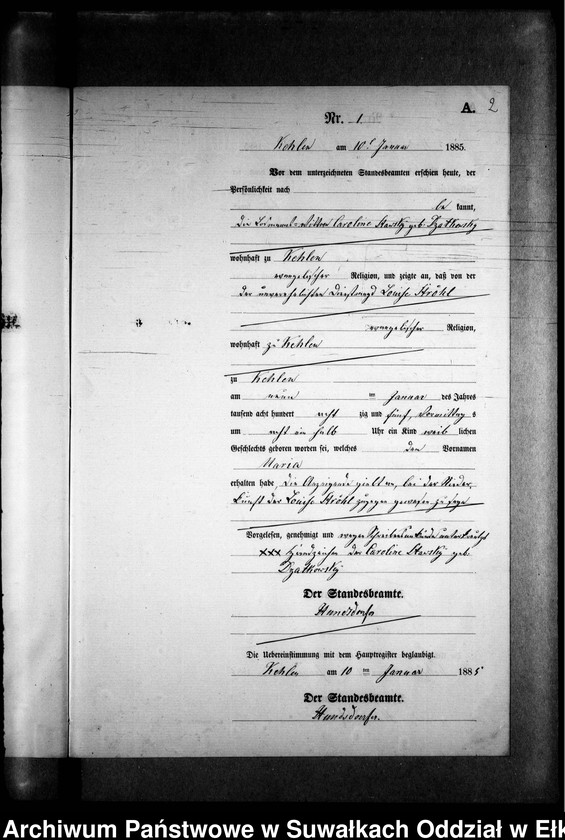 A. 2
Nr. 1.
Kehlen am 10t Januar 1885.
Vor dem unterzeichneten Standesbeamten erschien heute, der
Persönlichkeit nach
be kannt,
die Wittwe Caroline Stawsky geb. Dzatkowsky
wohnhaft zu Kehlen
evangelischer Religion, und zeigte an, daß von der
der unverehelichten Dienstmagd Louise Ströhl
evangelischer Religion,
wohnhaft zu Kehlen
zu Kehlen
am neun ten Januar des Jahres
tausend acht hundert acht zig und fünf, Vormittag s
um acht ein halb Uhr ein Kind weib lichen
Geschlechts geboren worden sei, welches den Vornamen
Maria
erhalten habe, die Anzeigende giebt an, bei der Nieder
kunft der Louise Ströhl zugegen gewesen zu sein
Vorgelesen, genehmigt und wegen Schreibensunkunde unterkreuzt
xxx Handzeichen der Caroline Stawsky geb.
Dzatkowsky
Der Standesbeamte.
Hundsdoerfer
Die Uebereinstimmung mit dem Hauptregister beglaubigt.
Kehlen am 10 ten Januar 1885
Der Standesbeamte.
Hundsdoerfer.
Archiwum Państwowe w Suwałkach Oddział w Ełk